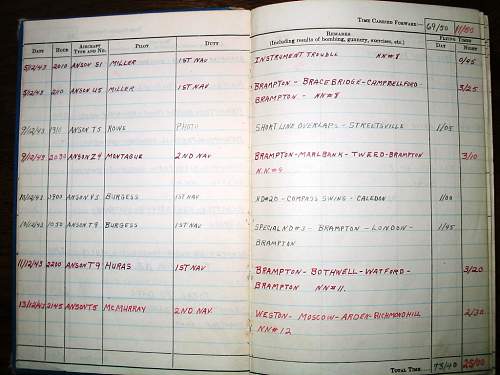 TIME CARRIED FORWARD:— 69/50 11/50
DATE HOUR AIRCRAFT TYPE AND NO. PILOT DUTY REMARKS (Including results of bombing, gunnery, exercises, etc.) FLYING TIMES DAY NIGHT
5/12/43 2010 ANSON 51 MILLER 1ST NAV INSTRUMENT TROUBLE NN#8 0/45
5/12/43 ANSON U5 MILLER 1ST NAV BRAMPTON - BRACEBRIDGE - CAMPBELLFORD 3/25
BRAMPTON - NN#8
9/12/43 1310 ANSON T5 ROWE PHOTO SHORT LINE OVERLAPS - STREETSVILLE 1/05
9/12/43 2030 ANSON Z4 MONTAGUE 2ND NAV BRAMPTON - MARLBANK - TWEED - BRAMPTON 3/10
N.N.#9
10/12/43 0900 ANSON V5 BURGESS 1ST NAV ND#20 - COMPASS SWING - CALEDON 1/00
10/12/43 1050 ANSON T9 BURGESS 1ST NAV SPECIAL ND#3 - BRAMPTON - LONDON - 1/45
BRAMPTON
11/12/43 2200 ANSON T9 HURAS 1ST NAV BRAMPTON - BOTHWELL - WATFORD - 3/20
BRAMPTON NN#11.
13/12/43 2145 ANSON T5 MCMURRAY 2ND NAV. WESTON - MOSCOW - ARDEN - RICHMONDHILL 2/30
NN#12
TOTAL TIME 73/40 25/00